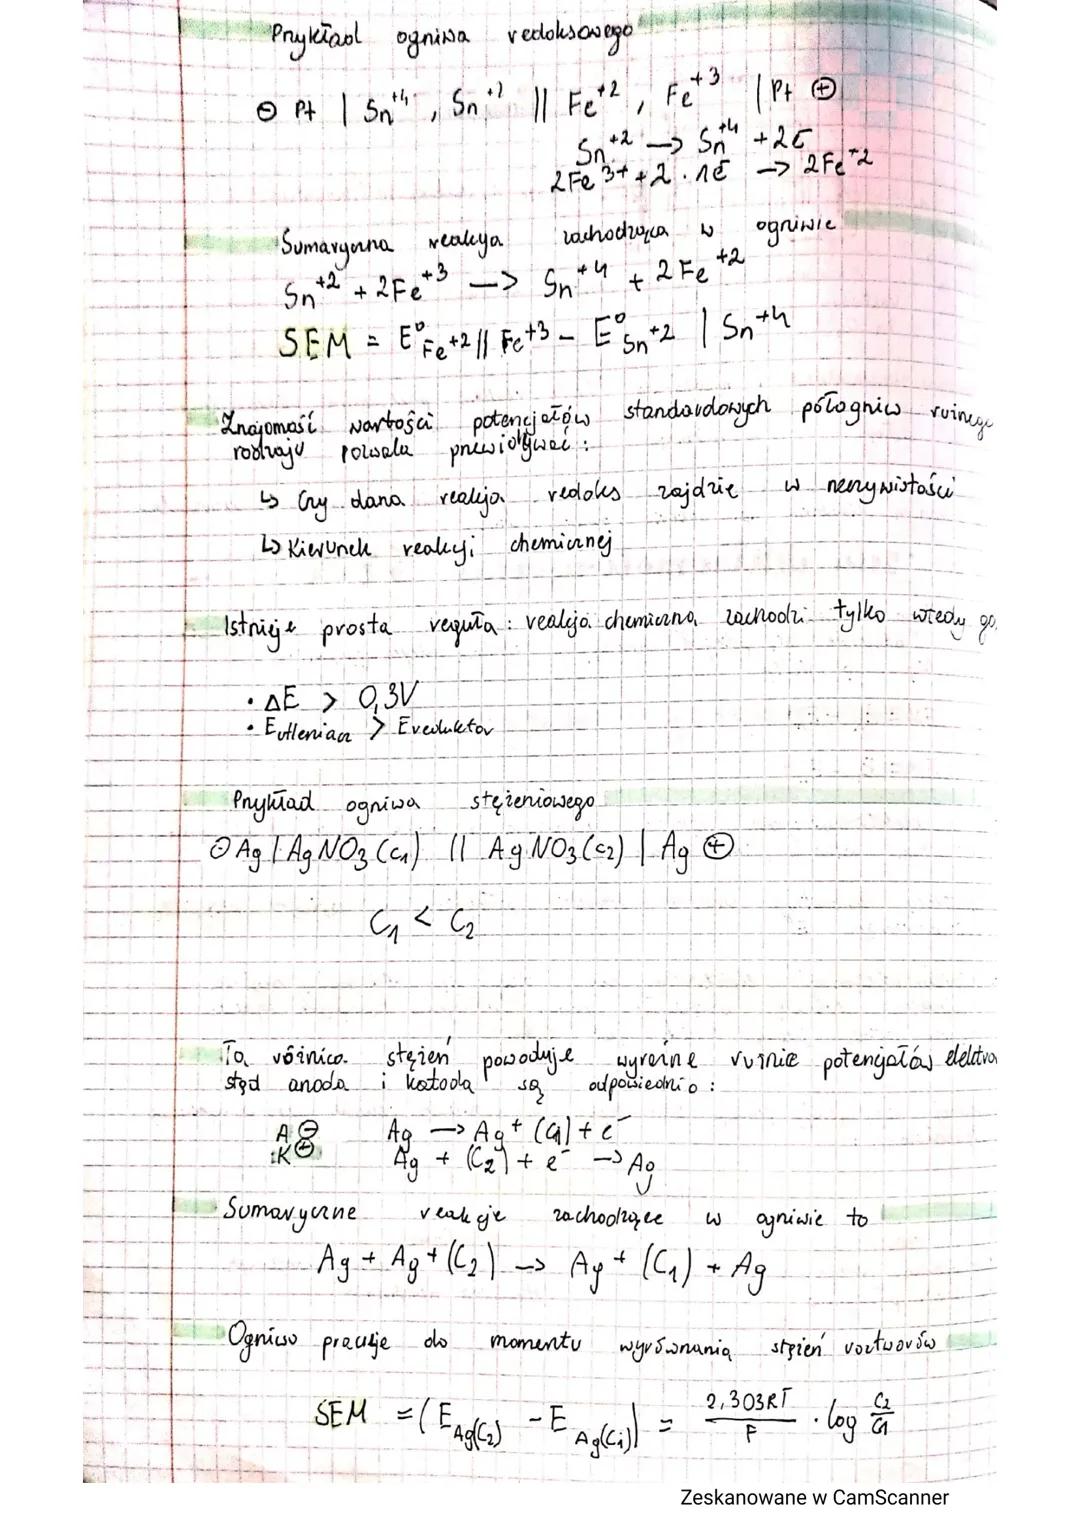 Przykład ogniwa redoksowego
⊖ Pt | Sn⁺⁴, Sn⁺² || Fe⁺², Fe⁺³ | Pt ⊕
Sn⁺² → Sn⁺⁴ + 2ē
2Fe³⁺ + 2 · 1ē → 2Fe⁺²
Sumaryczna reakcja zachodząca w ogniwie
Sn⁺² + 2Fe⁺³ –> Sn⁺⁴ + 2Fe⁺²
SEM = E⁰Fe+2||Fe+3 – E⁰Sn+2 | Sn+4
Znajomość wartości potencjałów standardowych półogniw
rodzaju pozwala przewidywać :
↳ Czy dana reakcja redoks zajdzie w rzeczywistości
↳ Kierunek reakcji chemicznej
Istnieje prosta reguła : reakcja chemiczna zachodzi tylko wtedy
• ΔE > 0,3V
• Eutleniacz > Ereduktor
Przykład ogniwa stężeniowego
⊖ Ag | AgNO₃ (c₁) || AgNO₃ (c₂) | Ag ⊕
C₁ < C₂
Ta różnica stężeń powoduje wyraźne różnice potencjałów
stąd anoda i katoda są odpowiednio :
A ⊖ Ag –> Ag⁺ (C₁) + e⁻
K ⊕ Ag + (C₂) + e⁻ –> Ag
Sumaryczne reakcje zachodzące w ogniwie to
Ag + Ag⁺ (C₂) –> Ag⁺ (C₁) + Ag
Ogniwo pracuje do momentu wyrównania stężeń roztworów
SEM = (E Ag(C₂) – E Ag(C₁)) = 2,303RT/F · log C₂/C₁
Zeskanowane w CamScanner